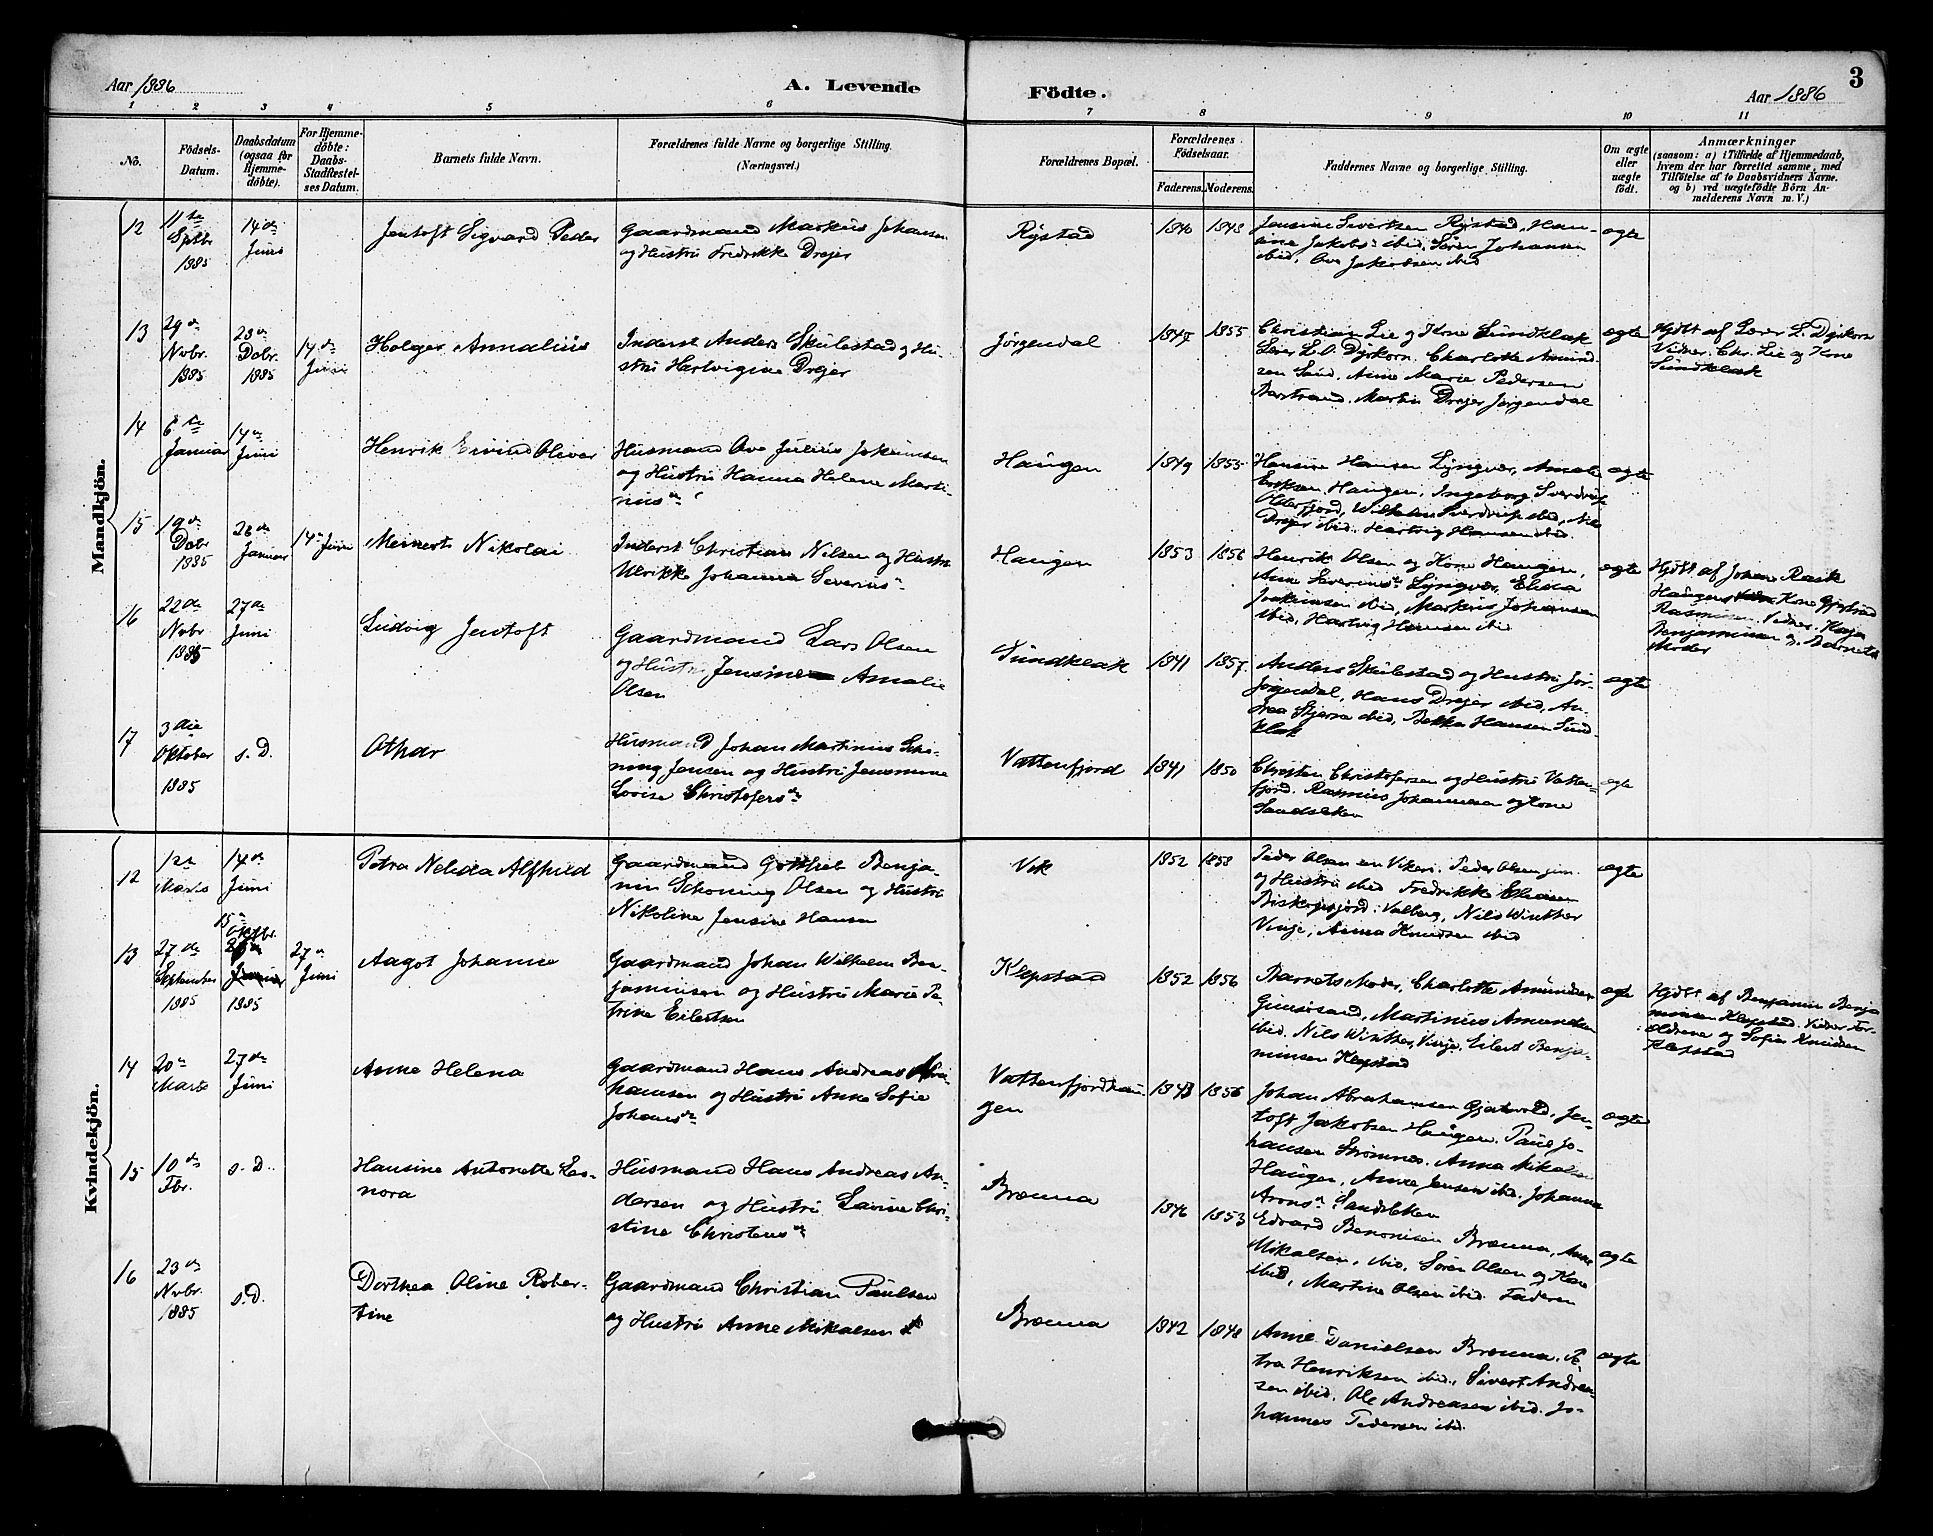 Aar 1886
A. Levende
Födte.
Aar 1886
3
1 2 3 4 5 6 7 8 9 10 11
No.
Födsels-
Datum.
Daabsdatum
(ogsaa for
Hjemme-
döbte).
For Hjemme-
döbte:
Daabs-
Stadfæstel-
ses Datum.
Barnets fulde Navn.
Forældrenes fulde Navne og borgerlige Stilling.
(Næringsvei.)
Forældrenes Bopæl.
Forældrenes
Födselsaar.
Faderens. Moderens.
Faddernes Navne og borgerlige Stilling.
Om ægte
eller
uægte
født.
Anmærkninger
(saasom: a) i Tilfælde af Hjemmedaab,
hvem der har forrettet samme, med
Tilføielse af to Daabsvidners Navne,
og b) ved uægtefödte Börn An-
melderens Navn m. V.)
Mandkjön.
12
11te
Sptbr
1885
14de
Juni
Jentoft Sigvard Peder
Gaardmand Markus Johansen
og Hustru Fredrikke Drejer
Rystad
1840 1848
Jensine Sivertsen Rystad, Han-
sine Jakobs. ibid, Sören Johansen
ibid, Ove Jakobsen ibid
ægte
13
29de
Nvbr.
1885
28de
Dcbr.
1885
14de
Juni
Holger Annelius
Inderst Anders Skulestad og Hu-
stru Hartvigine Drejer
Jørgendal
1847 1855
Christian Lie og Kone Sundklak
Lærer L. O. Dyrkorn, Charlotte Amund-
sen Sund, Anne Marie Pedersen
Barstrand, Martin Drejer Jørgendal
ægte
Hjdbt af Lærer L. Dyrkorn
Vidner: Chr. Lie og Kone
Sundklak
14
6te
Januar
14de
Juni
Henrik Eivind Oliver
Husmand Ove Julius Jokumsen
og Hustru Hanna Helene Marti-
nius de
Haugen
1849 1855
Hansine Hansen Lyngvær, Amalie
Eriksen Haugen, Ingeborg Sverdrup
Olderfjord, Wilhelm Sverdrup ibid, Nils
Drejer ibid. Hartvig Hansen ibid.
ægte
15
19de
Dcbr
1885
28de
Januar
14de Juni
Meinert Nikolai
Inderst Christian Nilsen og Hustru
Ulrikke Johanna Severins
Haugen
1853 1856
Henrik Olsen og Kone Haugen,
Ane Severins Lyngvær, Elida
Joakimsen ibid, Markus Johansen
ibid, Hartvig Hansen ibid
ægte
Hjdbt af Johan Rask
Haugen Kone
Rasmussen. Vidner. Kaja
Benjaminsen og Barnets
Moder
16
22de
Nvbr.
1885
27de
Juni
Ludvig Jentoft
Gaardmand Lars Olsen
og Hustru Jensine Amalie
Olsen
Sundklak
1841 1857
Anders Skulestad og Hustru Jør-
Jørgendal, Hans Drejer ibid, An-
drea Stjerne ibid, Bekka Hansen Sund-
klak
ægte
17
3die
Oktober
1885
s. D.
Othar
Husmand Johan Martinius Schö-
ning Jensen og Hustru Jensmine
Lovise Christofers de
Vattenfjord
1841 1850
Christen Christofersen og Hustru Vatten-
fjord. Rasmus Johannesen og Kone
Sandsleken
ægte
Kvindekjön.
12
1ste
Marts
14de
Juni
Petra Nelida Alfhild
Gaardmand Gottlieb Benja-
min Schöning Olsen og Hustru
Nikoline Jensine Hansen
Vik
1852 1858
Peder Olsen sen Viken, Peder Olsen jun.
og Hustru ibid Fredrikke Eliasen
Valberg, Nils Winther
Vinje, Anna Knudsen ibid
ægte
13
27de
September
1885
15de
Oktbr.
1885
27de
Juni
Aagot Johanne
Gaardmand Johan Wilhelm Ben-
jaminsen og Hustru Marie Pe-
trine Eilertsen
Klepstad
1852 1856
Barnets Moder, Charlotte Amundsen
Gimsösand, Martinius Amundsen
ibid, Nils Winther, Vinje, Eilert Benja-
minsen Klepstad
ægte
Hjdbt af Benjamin Benja
minsen Klepstad. Vidner For-
ældrene og Sofie Knudsen
Klepstad
14
20de
Marts
27de
Juni
Anne Helena
Gaardmand Hans Andreas Abra
hamsen og Hustru Anne Sofie
Johans de
Vattenfjordhau-
gen
1843 1856
Johan Abrahamsen Gjæmvold, Jen-
toft Jakobsen Haugen. Paul Jo-
hansen Strömnes. Anna Mikalsen
Haugen, Anne Jensen ibid. Johanna
Arons de Sandsleken
ægte
15
10de
Fbr.
s. D.
Hansine Antonette Leo-
nora
Husmand Hans Andreas An-
dersen og Hustru Lavine Chri-
stine Christens de
Brenna
1846 1853
Edvard Benonisen Brenna, Anne
Mikalsen, ibid, Sören Olsen og Kone
ibid, Martine Olsen ibid. Faderen
ægte
16
23de
Nvbr.
1885
s. D.
Dorthea Oline Rober-
tine
Gaardmand Christian Paulsen
og Hustru Anne Mikalsen
Brenna
1842 1848
Anne Danielsen Brenna, Pe-
tra Henriksen ibid., Sivert Andrea-
sen ibid, Ole Andreasen ibid. Jo-
hannes Pedersen ibid.
ægte